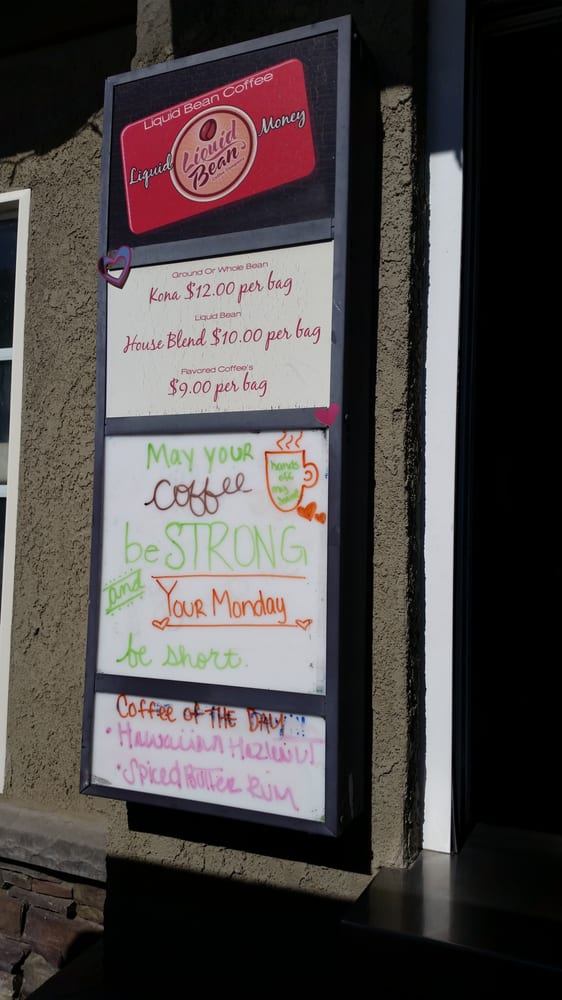 Liquid Bean Coffee
Liquid Money
Liquid
Bean
Ground Or Whole Bean
Kona $12.00 per bag
Liquid Bean
House Blend $10.00 per bag
Flavored Coffee's
$9.00 per bag
May your
coffee
hands
off
my
be STRONG
and
Your Monday
be short.
Coffee of THE DAY!!!
• Hawaiian Hazelnut
• Spiced Butter Rum